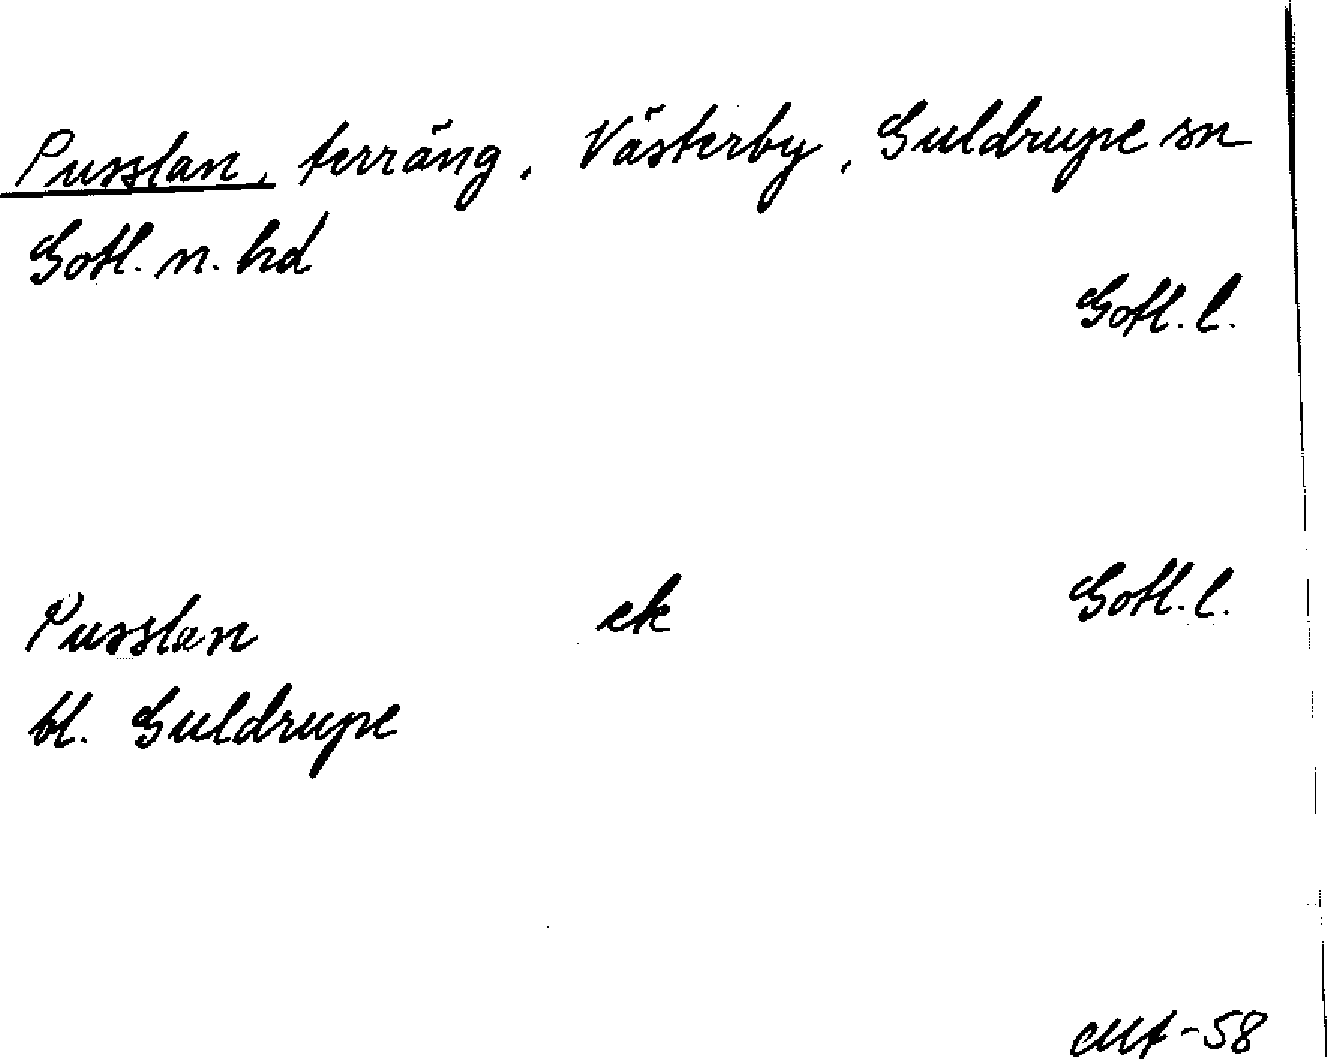 Pusslan, terräng, Västerby, Guldrupe sn
Gotl. n. hd
Gotl. l.
Pusslan ek Gotl. l.
bl. Guldrupe
-58